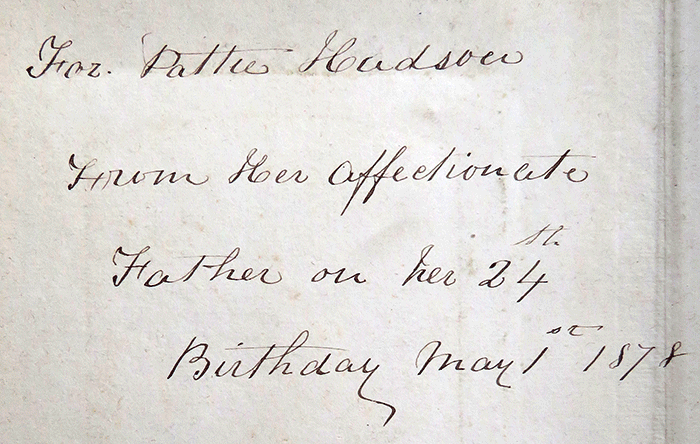 For. Pattie Hudson
From Her affectionate
Father on her 24th
Birthday May 1st 1878